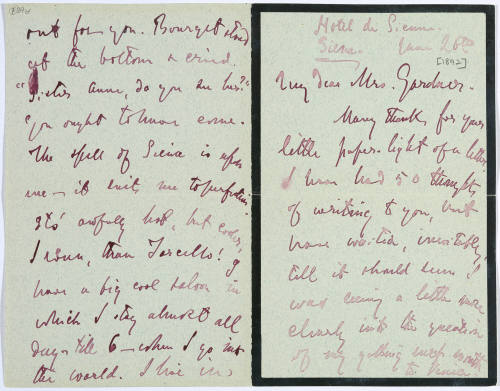 Hotel de Sienne.
Siena. June 26th
[1892]
My dear Mrs. Gardner.
Many thanks for your
little paper-light of a letter
I have had 50 thoughts
of writing to you, but
have waited, inevitably,
till it should seem I
was seeing a little more
clearly into the question
of my getting back
to Venice
out for you. Bourget stood
at the bottom & cried.
"Sister Anne, do you see her?"
You ought to have come.
The spell of Siena is upon
me — it suits me to perfection.
It's awfully hot, but cooler,
I ween, than Torcello! I
have a big cool saloon in
which I stay almost all
day — till 6 — when I go into
the world. I live in